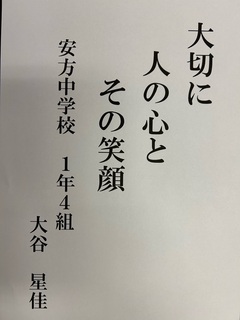 大切に
人の心と
その笑顔
安方中学校 1年4組
大谷 星佳